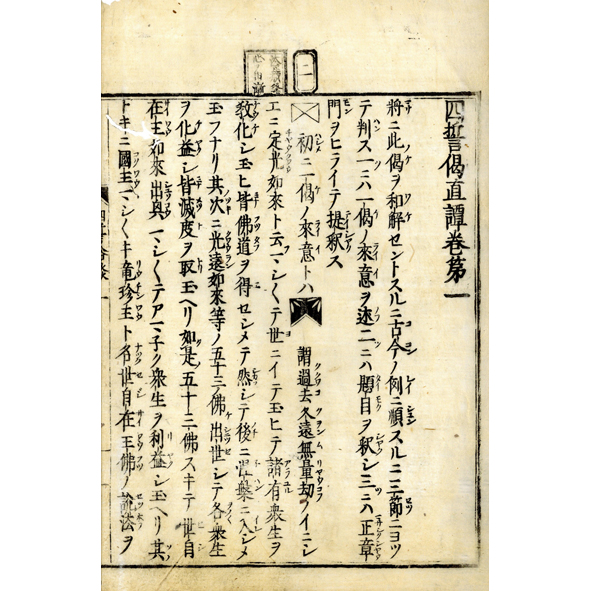 四誓偈直譚巻第一
將ニ此偈ヲ和解セントスルニ古今ノ例ニ順スルニ三節ニヨツ
テ判ス一ニハ偈ノ來意ヲ述二ニハ題目ヲ釈シ三ニハ正章
門ヲヒライテ提釈ス
初ニ偈ノ來意トハ 謂過去久遠無量劫ノイニシ
エニ定光如來ト云マシ〱テ世ニイテ玉ヒテ諸有衆生ヲ
教化シ玉ヒ皆佛道ヲ得セシメテ然シテ後ニ涅槃ニ入シメ
玉フナリ其次ニ光遠如來等ノ五十三佛出世シテ各衆生
ヲ化益シ皆滅度ヲ取玉ヘリ如是五十三佛スキテ世自
在王如來出興マシ〱テアマ子ク衆生ヲ利益シ玉ヘリ其
トキニ國主マシ〱キ竜珍王ト名世自在王佛ノ説法ヲ
二